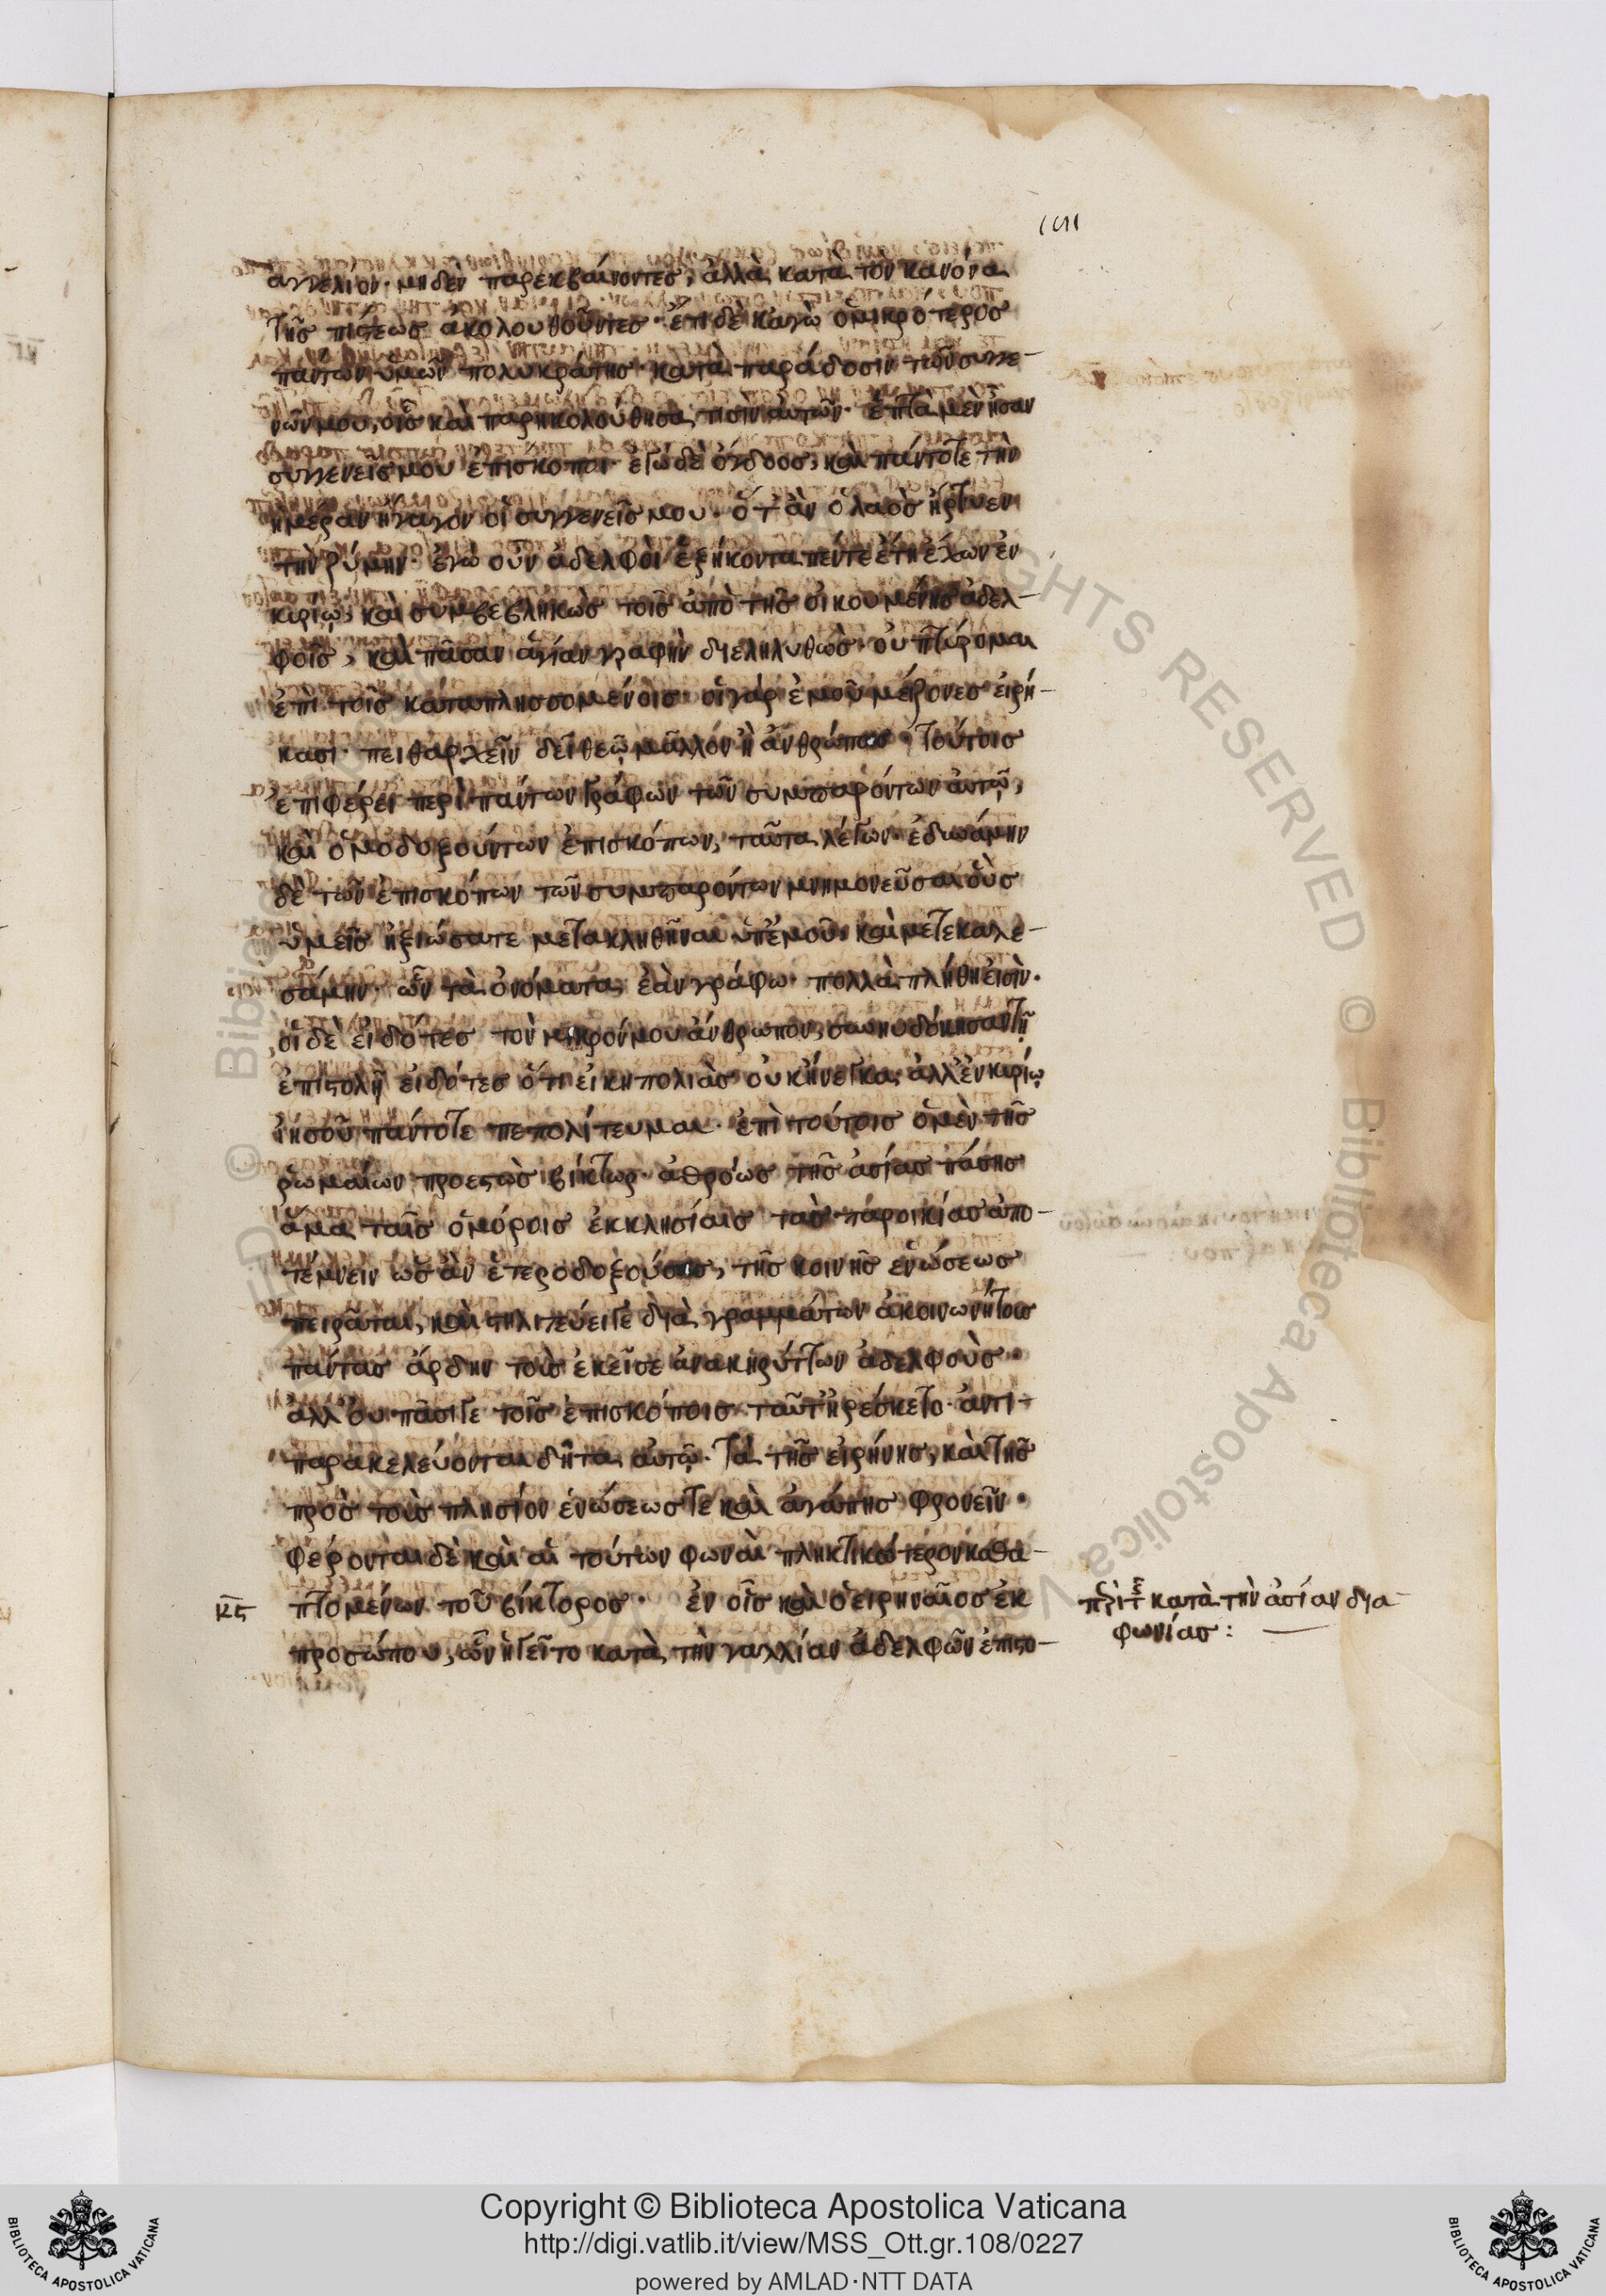 αγγέλιον· μηδὲν παρεκβαίνοντες, ἀλλὰ κατὰ τὸν κανόνα
τῆς πίστεως ἀκολουθοῦντες· ἔτι δὲ κἀγὼ ὁ μικρότερος
πάντων ὑμῶν πολυκράτης· κατὰ παράδοσιν τῶν συγγε-
νῶν μου, οἷς καὶ παρηκολούθησα τισὶν αὐτῶν· ἑπτὰ μὲν ἦσαν
συγγενεῖς μου ἐπίσκοποι· ἐγὼ δὲ ὄγδοος, καὶ πάντοτε τὴν
ἡμέραν ἤγαγον οἱ συγγενεῖς μου· ὅτ' ἂν ὁ λαὸς ἤρτυεν
τὴν ζύμην· ἐγὼ οὖν ἀδελφοὶ ἑξήκοντα πέντε ἔτη ἔχων ἐν
κυρίῳ, καὶ συμβεβληκὼς τοῖς ἀπὸ τῆς οἰκουμένης ἀδελ-
φοῖς, καὶ πᾶσαν ἁγίαν γραφὴν διεληλυθὼς· οὐ πτύρομαι
ἐπὶ τοῖς καταπλησσομένοις· οἱ γὰρ ἐμοῦ μείζονες εἰρή-
κασι· πειθαρχεῖν δεῖ θεῷ μᾶλλον ἢ ἀνθρώποις· τούτοις
ἐπιφέρει περὶ πάντων γράφων τῶν συμπαρόντων αὐτῷ,
καὶ ὁμοδοξούντων ἐπισκόπων, ταῦτα λέγων· ἐδυνάμην
δὲ τῶν ἐπισκόπων τῶν συμπαρόντων μνημονεῦσαι οὓς
ὑμεῖς ἠξιώσατε μετακληθῆναι ὑπ' ἐμοῦ· καὶ μετεκαλε-
σάμην· ὧν τὰ ὀνόματα ἐὰν γράφω· πολλὰ πλήθη εἰσὶν·
οἱ δὲ εἰδότες τὸν μικρόν μου ἄνθρωπον, συνηυδόκησαν τῇ
ἐπιστολῇ εἰδότες ὅτι εἰκῇ πολιὰς οὐκ ἤνεγκα· ἀλλ' ἐν κυρίῳ
ἰησοῦ πάντοτε πεπολίτευμαι· ἐπὶ τούτοις ὁ μὲν τῆς
ῥωμαίων προεστὼς βίκτωρ· ἀθρόως τῆς ἀσίας πάσης
ἅμα ταῖς ὁμόροις ἐκκλησίαις τὰς παροικίας ἀπο-
τέμνειν ὡς ἂν ἑτεροδοξούσας, τῆς κοινῆς ἑνώσεως
πειρᾶται, καὶ στηλιτεύει γε διὰ γραμμάτων ἀκοινωνήτους
πάντας ἄρδην τοὺς ἐκεῖσε ἀνακηρύττων ἀδελφοὺς·
ἀλλ' οὐ πᾶσί γε τοῖς ἐπισκόποις ταῦτ' ἠρέσκετο· ἀντι-
παρακελεύονται δῆτα αὐτῷ· τὰ τῆς εἰρήνης, καὶ τῆς
πρὸς τοὺς πλησίον ἑνώσεώς τε καὶ ἀγάπης φρονεῖν·
φέρονται δὲ καὶ αἱ τούτων φωναὶ πληκτικώτερον καθα-
κϛ πτομένων τοῦ βίκτορος· ἐν οἷς καὶ ὁ εἰρηναῖος ἐκ
προσώπου, ὧν ἡγεῖτο κατὰ τὴν γαλλίαν ἀδελφῶν ἐπιστο-
κατὰ τὴν ἀσίαν δια-
φωνίας:
Copyright © Biblioteca Apostolica Vaticana
http://digi.vatlib.it/view/MSS_Ott.gr.108/0227
powered by AMLAD·NTT DATA
BIBLIOTECA APOSTOLICA VATICANA
BIBLIOTECA APOSTOLICA VATICANA